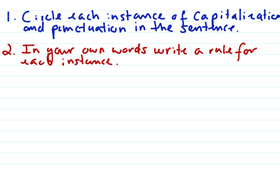 1. Circle each instance of Capitalization
and punctuation in the sentence.
2. In your own words write a rule for
each instance.